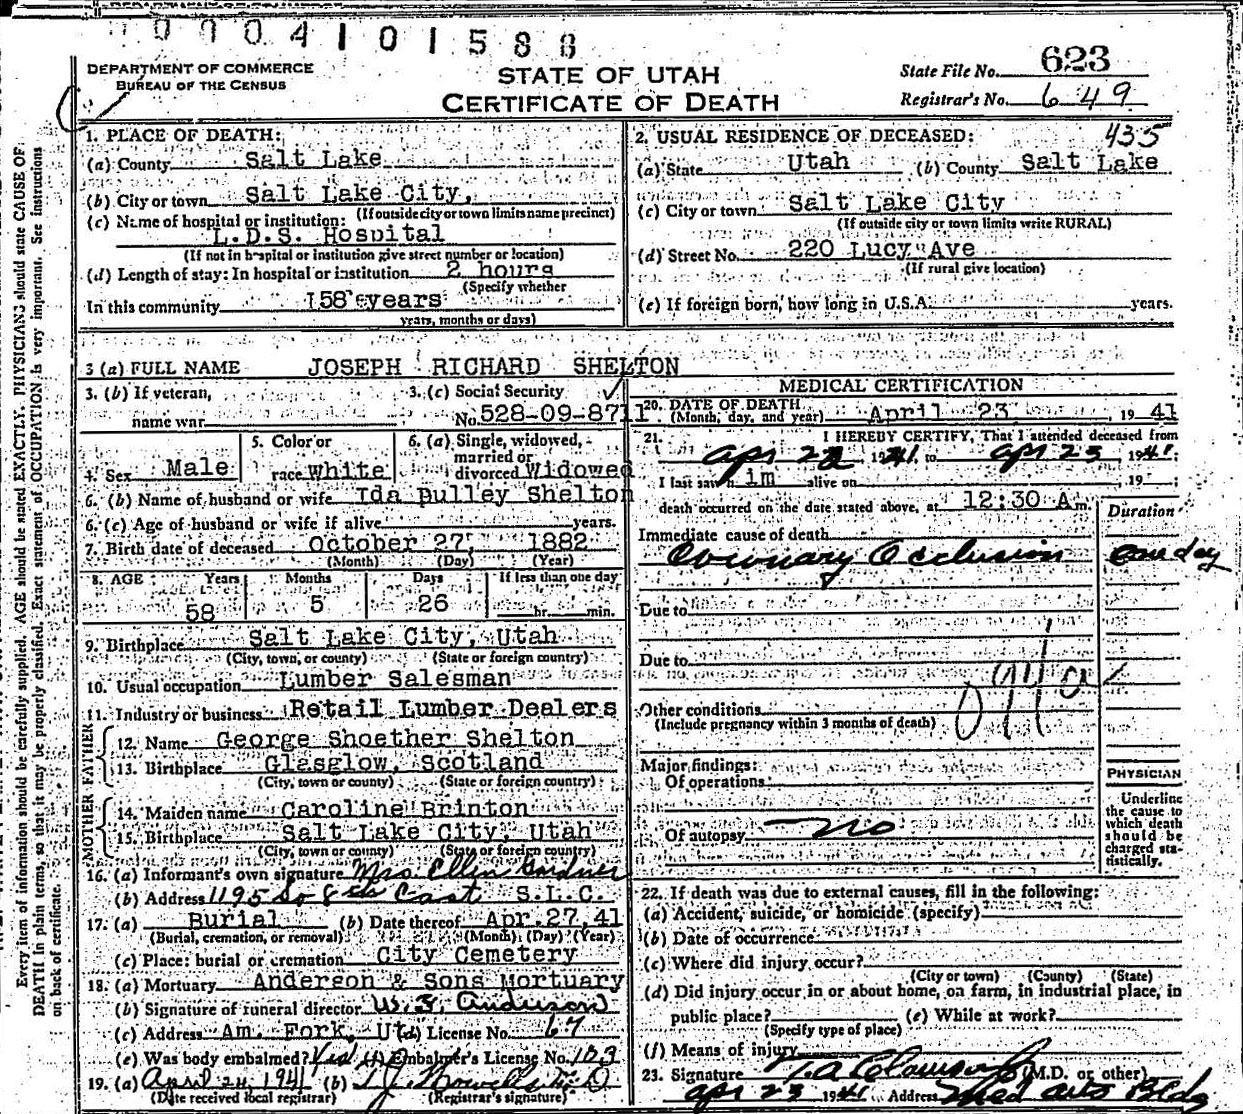 0004101588
DEPARTMENT OF COMMERCE
BUREAU OF THE CENSUS
STATE OF UTAH
CERTIFICATE OF DEATH
State File No. 623
Registrar's No. 649
1. PLACE OF DEATH:
(a) County Salt Lake
(b) City or town Salt Lake City,
(If outside city or town limits name precinct)
(c) Name of hospital or institution:
L.D.S. Hospital
(If not in hospital or institution give street number or location)
(d) Length of stay: In hospital or institution 2 hours
(Specify whether
In this community 58 years
years, months or days)
2. USUAL RESIDENCE OF DECEASED: 435
(a) State Utah (b) County Salt Lake
(c) City or town Salt Lake City
(If outside city or town limits write RURAL)
(d) Street No. 220 Lucy Ave
(If rural give location)
(e) If foreign born, how long in U.S.A. years.
3 (a) FULL NAME JOSEPH RICHARD SHELTON
3. (b) If veteran,
name war
3. (c) Social Security
No. 528-09-8711
4. Sex Male
5. Color or
race White
6. (a) Single, widowed,
married or
divorced Widowed
6. (b) Name of husband or wife Ida Pulley Shelton
6. (c) Age of husband or wife if alive years.
7. Birth date of deceased October 27, 1882
(Month) (Day) (Year)
8. AGE Years Months Days If less than one day
58 5 26 hr. min.
9. Birthplace Salt Lake City, Utah
(City, town, or county) (State or foreign country)
10. Usual occupation Lumber Salesman
11. Industry or business Retail Lumber Dealers
FATHER
12. Name George Shoether Shelton
13. Birthplace Glasglow, Scotland
(City, town or county) (State or foreign country)
MOTHER
14. Maiden name Caroline Brinton
15. Birthplace Salt Lake City, Utah
(City, town or county) (State or foreign country)
16. (a) Informant's own signature Mrs. Ellen Gardner
(b) Address 1195 So 8th East S.L.C.
17. (a) Burial (b) Date thereof Apr. 27, 41
(Burial, cremation, or removal) (Month) (Day) (Year)
(c) Place: burial or cremation City Cemetery
18. (a) Mortuary Anderson & Sons Mortuary
(b) Signature of funeral director W. F. Anderson
(c) Address Am. Fork, Ut (d) License No. 67
(e) Was body embalmed? Yes (f) Embalmer's License No. 103
19. (a) April 24, 1941 (b) T J Howells M D
(Date received local registrar) (Registrar's signature)
MEDICAL CERTIFICATION
20. DATE OF DEATH
(Month, day, and year) April 23 1941
21. I HEREBY CERTIFY, That I attended deceased from
Apr 22 1941, to Apr 23 1941;
I last saw h im alive on 19 ;
death occurred on the date stated above, at 12:30 A m.
Duration
Immediate cause of death
Coronary Occlusion one day
Due to
Due to
094a
Other conditions
(Include pregnancy within 3 months of death)
Major findings:
Of operations
Of autopsy no
PHYSICIAN
Underline
the cause to
which death
should be
charged sta-
tistically.
22. If death was due to external causes, fill in the following:
(a) Accident, suicide, or homicide (specify)
(b) Date of occurrence
(c) Where did injury occur?
(City or town) (County) (State)
(d) Did injury occur in or about home, on farm, in industrial place, in
public place? (e) While at work?
(Specify type of place)
(f) Means of injury
23. Signature T. A. Clawson Jr (M.D. or other)
Apr 23 1941 Address Med Arts Bldg
Every item of information should be carefully supplied. AGE should be stated EXACTLY. PHYSICIANS should state CAUSE OF
DEATH in plain terms, so that it may be properly classified. Exact statement of OCCUPATION is very important. See instructions
on back of certificate.